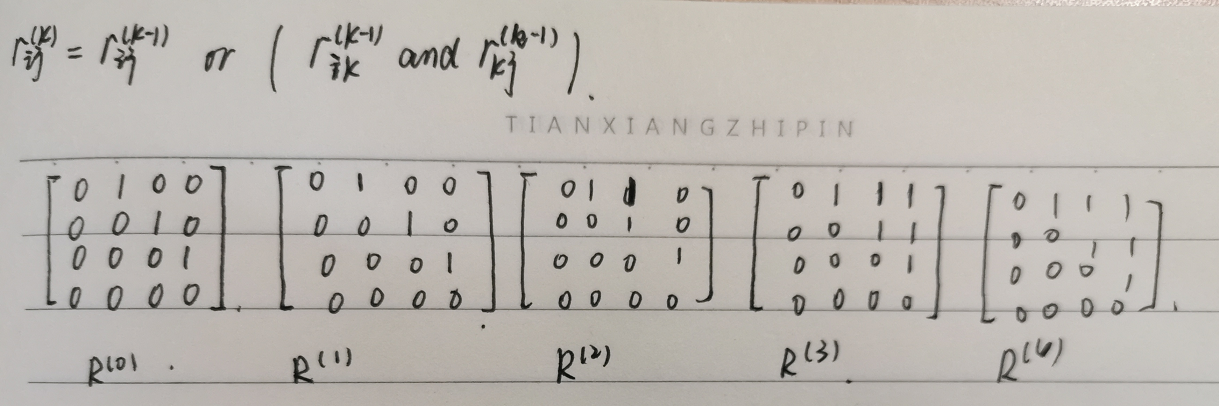 r_{ij}^{(k)} = r_{ij}^{(k-1)} or ( r_{ik}^{(k-1)} and r_{kj}^{(k-1)} ).
TIANXIANGZHIPIN
[0 1 0 0] [0 1 0 0] [0 1 1 0] [0 1 1 1] [0 1 1 1]
[0 0 1 0] [0 0 1 0] [0 0 1 0] [0 0 1 1] [0 0 1 1]
[0 0 0 1] [0 0 0 1] [0 0 0 1] [0 0 0 1] [0 0 0 1]
[0 0 0 0]. [0 0 0 0]. [0 0 0 0] [0 0 0 0] [0 0 0 0].
R^{(0)}. R^{(1)} R^{(2)} R^{(3)}. R^{(4)}